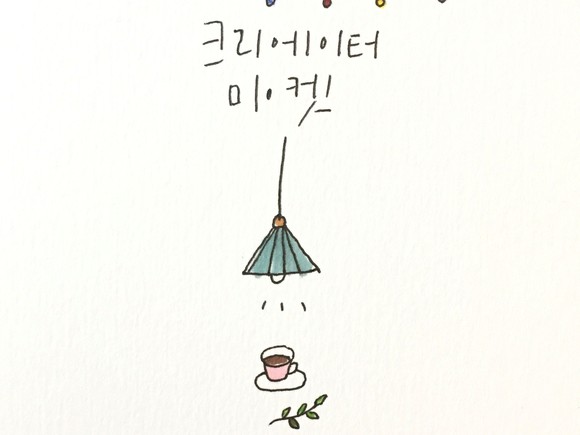 크리에이터
마켓